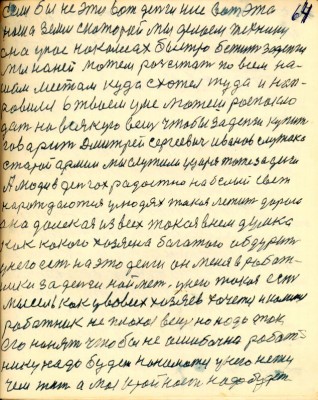 64
Если бы не эти вот деньги не вот эта
наша земля с которой мы делаем технику
она у нас на колесах быстро бежит за деньги
мы на ней можем разъезжать по всем на-
шим местам куда схотел туда и нап-
равили в твоем уме можем
дат на всякую вещь чтобы за деньги купит
говарит Дмитрей Сергеевич Иванов служака
старой армии мы служили у царя тоже за деньги
А люди в деньгах радостно на белый свет
нарождаются у людях такая летит дорога
она далекая из всех такая в нем думка
как какого хозяина богатого обдурить
у него есть на это деньги он меня в работ-
ники за деньги наймет у него такая есть
мысль как у вовсех хозяев хочет и
работник не плохая вещ но надо так
его нанят чтобы не ошибочна работ
нику надо будет понимать у него нету
чем жит а мой край надо будет